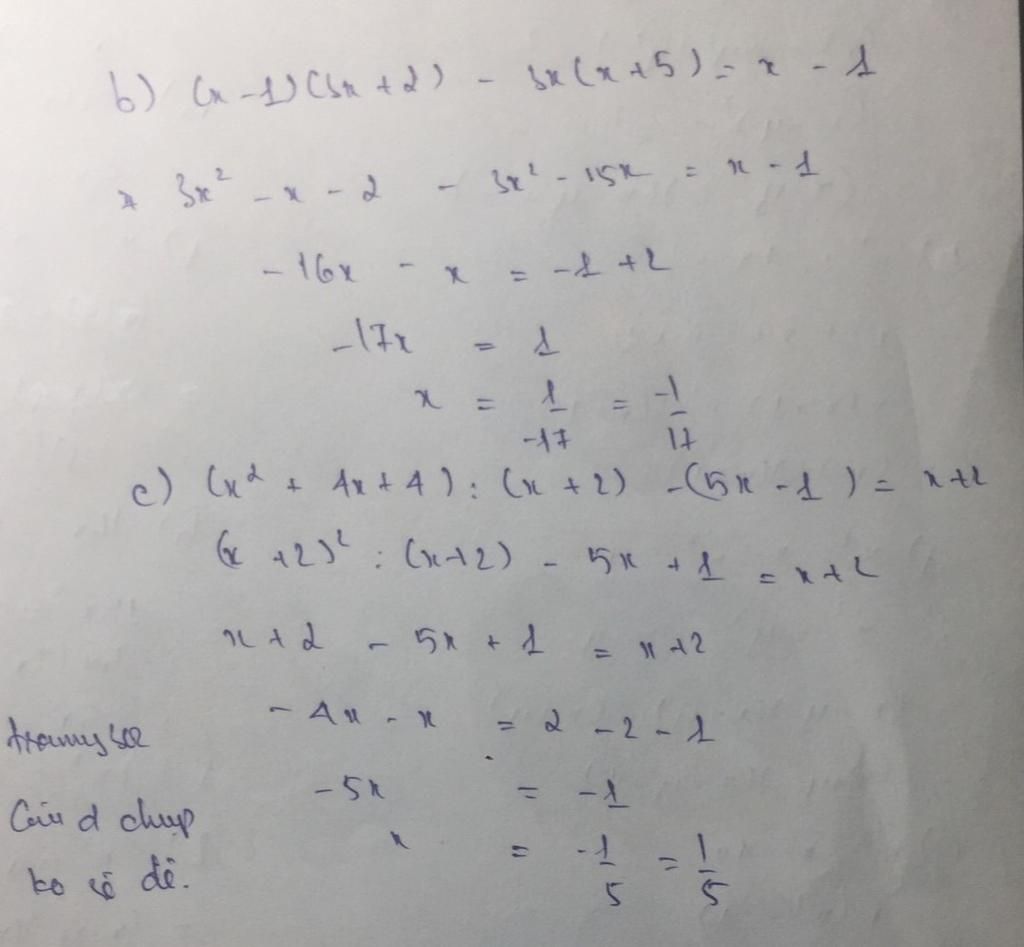 b) (x - 1)(3x + 2) - 3x(x + 5) = x - 1
3x² - x - 2 - 3x² - 15x = x - 1
-16x - x = -1 + 2
-17x = 1
x = 1/-17 = -1/17
c) (x² + 4x + 4) : (x + 2) - (5x - 1) = x + 2
(x + 2)² : (x + 2) - 5x + 1 = x + 2
x + 2 - 5x + 1 = x + 2
-4x - x = 2 - 2 - 1
-5x = -1
x = -1/5 = 1/5
Câu d chụp
ko rõ đề.